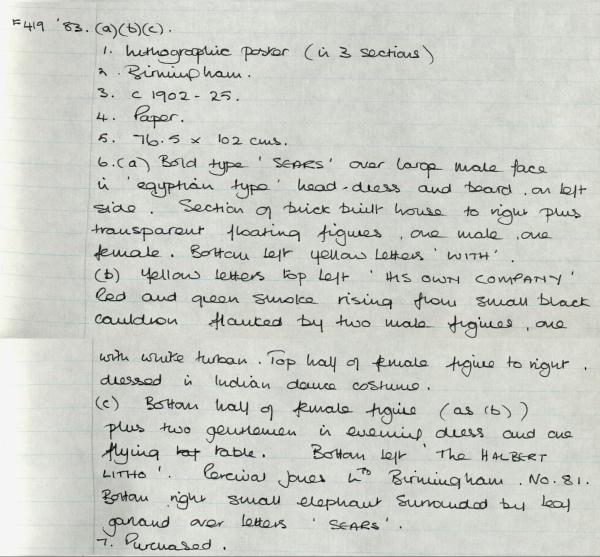 F419 '83. (a)(b)(c).
1. Lithographic poster (in 3 sections)
2. Birmingham.
3. c 1902-25.
4. Paper.
5. 76.5 x 102 cms.
6.(a) Bold type 'SEARS' over large male face
in 'egyptian type' head-dress and beard, on left
side. Section of brick built house to right plus
transparent floating figures, one male, one
female. Bottom left yellow letters 'WITH'.
(b) Yellow letters top left 'HIS OWN COMPANY'
Red and green smoke rising from small black
cauldron flanked by two male figures, one
with white turban. Top half of female figure to right.
dressed in Indian dance costume.
(c) Bottom half of female figure (as (b))
plus two gentlemen in evening dress and one
flying table. Bottom left 'The HALBERT
LITHO'. Percival Jones LTD Birmingham. No. 81.
Bottom right small elephant surrounded by leaf
garland over letters 'SEARS'.
7. Purchased.